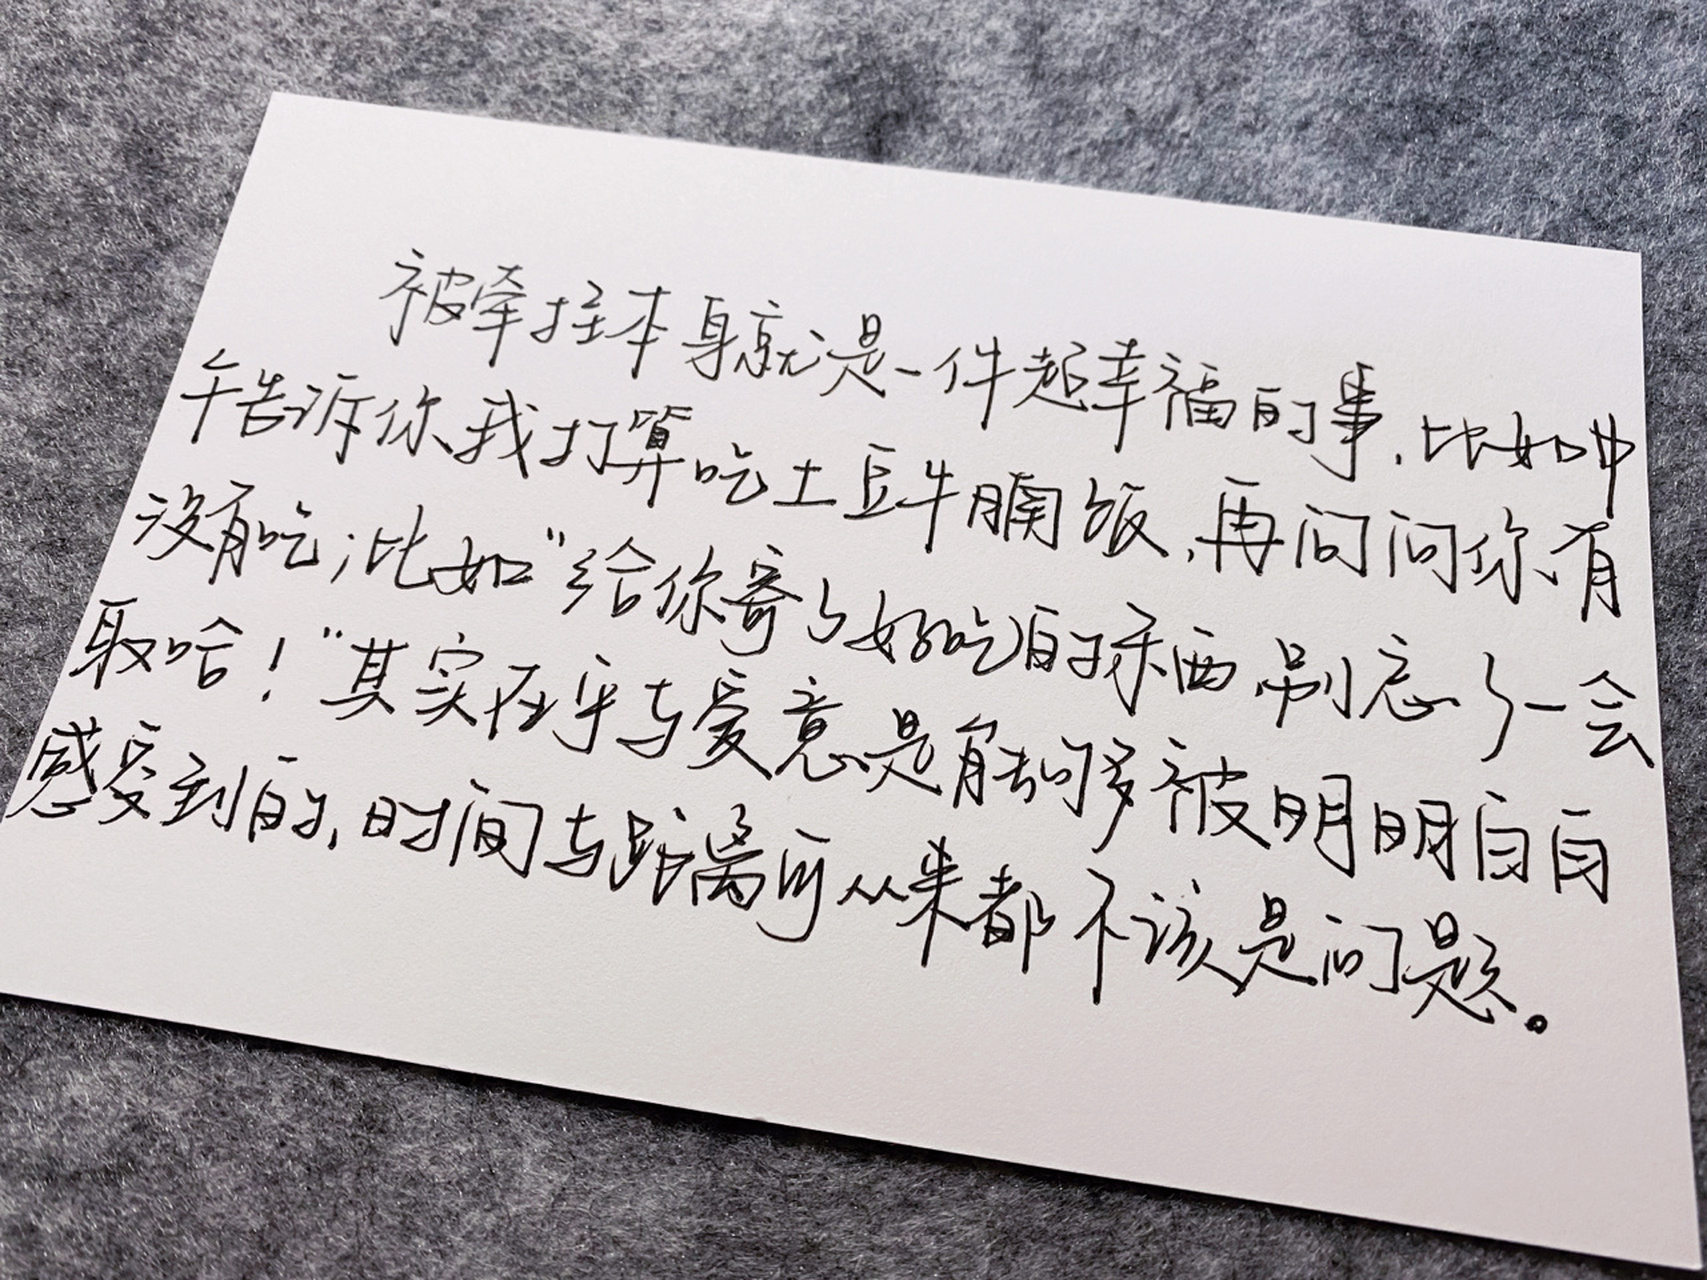 被牵挂本身就是一件超幸福的事,比如中
午告诉你我打算吃土豆牛腩饭,再问问你有
没有吃;比如“给你寄了好吃的东西别忘了一会
取哈!”其实在乎与爱意是能够被明明白白
感受到的,时间与距离可从来都不该是问题。